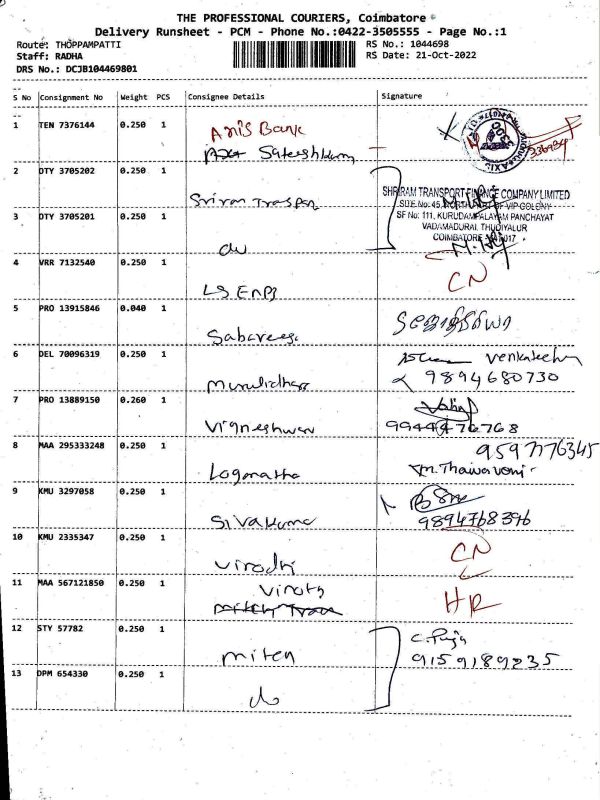 THE PROFESSIONAL COURIERS, Coimbatore
Delivery Runsheet - PCM - Phone No.:0422-3505555 - Page No.:1
Route: THOPPAMPATTI
RS No.: 1044698
Staff: RADHA
RS Date: 21-Oct-2022
DRS No.: DCJB104469801
S No Consignment No Weight PCS Consignee Details Signature
1 TEN 7376144 0.250 1 Axis Bank
Sateeshkum
2 DTY 3705202 0.250 1
SHRIRAM TRANSPORT FINANCE COMPANY LIMITED
Sriram Transpor
SITE No: 45, OF VIP COLONY
3 DTY 3705201 0.250 1
SF No: 111, KURUDAMPALAYAM PANCHAYAT
VADAMADURAI, THUDIYALUR
COIMBATORE 017
do
4 VRR 7132540 0.250 1 CN
LS Enps
5 PRO 13915846 0.040 1
Sabareesa
6 DEL 70096319 0.250 1 Venkatesh
Muralidhara 9894680730
7 PRO 13889150 0.260 1
Vigneshwar 9944476768
8 MAA 295333248 0.250 1 9597776345
Loganatha
9 KMU 3297058 0.250 1
Sivakuma 9894768396
10 KMU 2335347 0.250 1 CN
Virodhi
11 MAA 567121850 0.250 1 HR
12 STY 57782 0.250 1 C. Puja
Miten 9159189235
13 DPM 654330 0.250 1
do